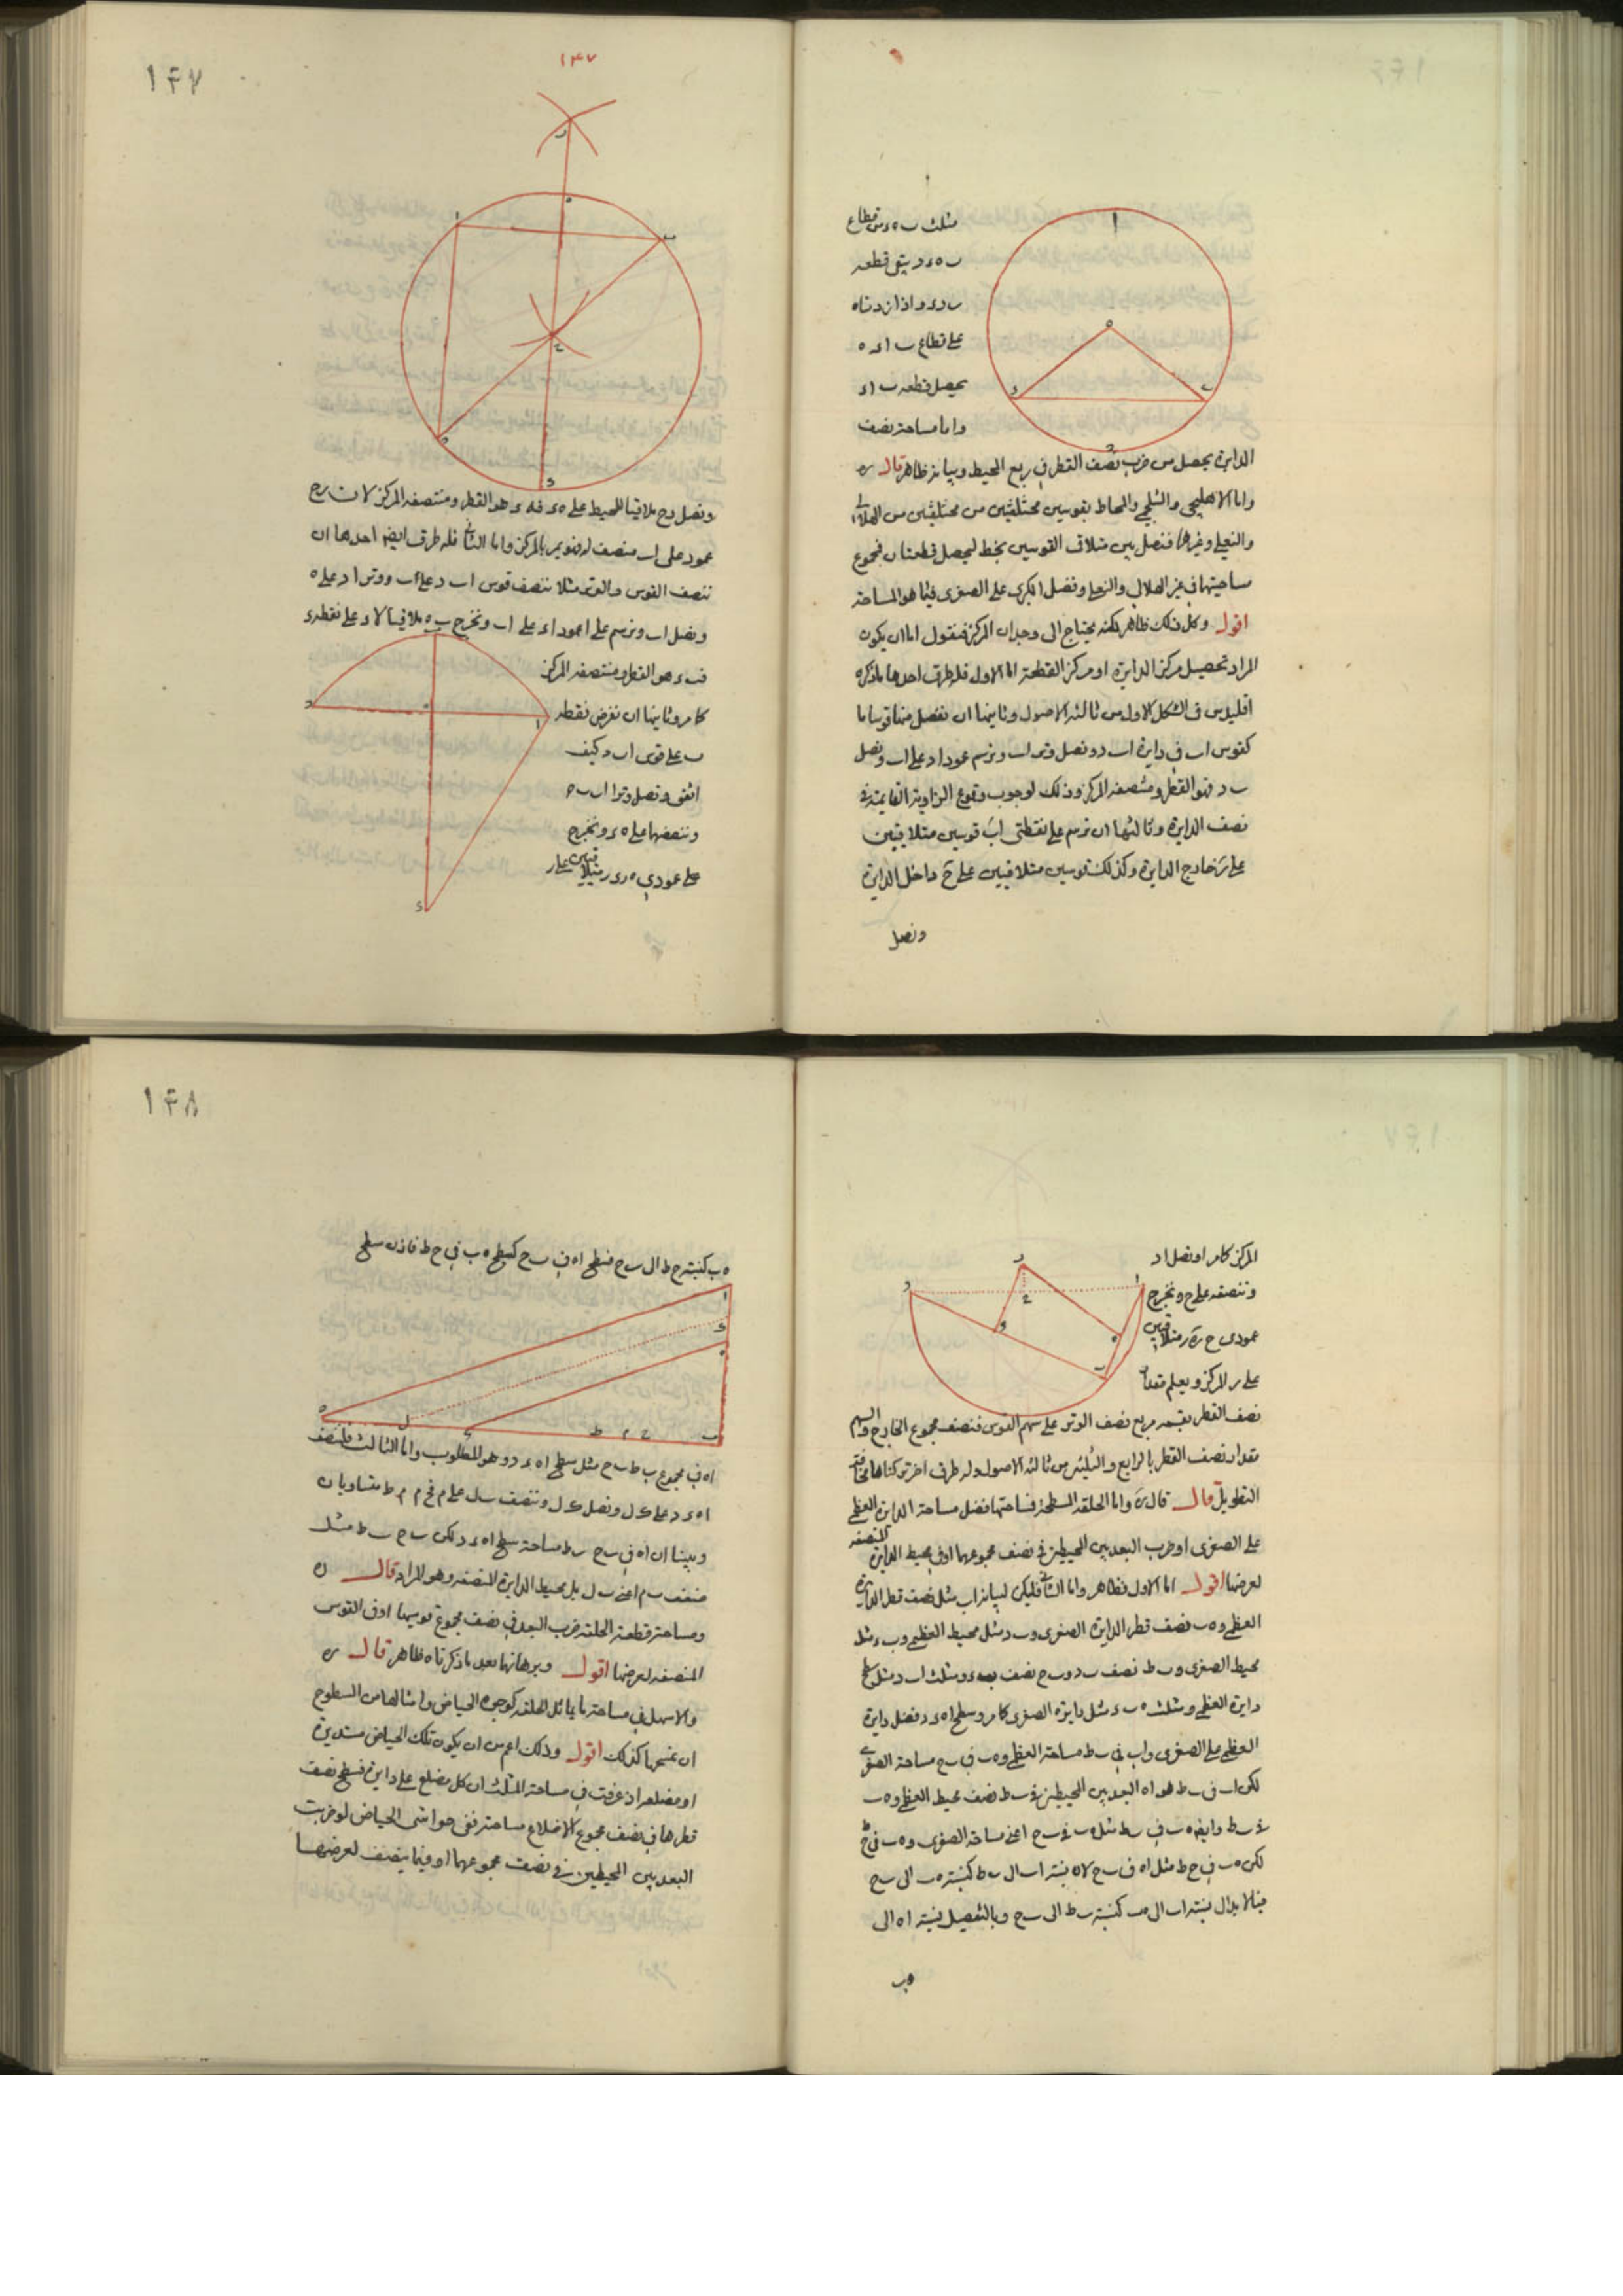 ١٤٧
مثلث ب ه ء من قطاع
ب ه ء د يبقى قطعه
ب د ء و اذا زدناه
على قطاع ب ا ء ه
يحصل قطعه ب ا ء
واما مساحته نصف
الدايرة يحصل من ضرب نصف القطر في ربع المحيط وبيانه ظاهر قال ره
واما الاهليلجي والشلجمي والمحاط بقوسين مختلفتين من الهلالي
والنعلي وغيرها فنصل بين متلاقى القوسين بخط ليحصل قطعتان فمجموع
مساحتيهما في غير الهلالي والنعلي وفضل الكبرى على الصغرى فيها هو المساحة
اقول وكل ذلك ظاهر لكنه يحتاج الى وجدان المركز فنقول اما ان يكون
المراد تحصيل مركز الدايرة او مركز القطعة اما الاول فله طرق احدها ما ذكره
اقليدس في الشكل الاول من ثالثه الاصول وثانيها ان نفصل منها قوسا ما
كقوس اب في دايرة اب د ونصل وتر اب ونرسم عمود اد على اب ونصل
ب د فهو القطر ومنتصفه المركز وذلك لوجوب وقوع الزاوية القايمة في
نصف الدايرة وثالثها ان نرسم على نقطتي اب قوسين متلاقيين
على ر خارج الدايرة وكذلك قوسين متلاقيين على ح داخل الدايرة
ونصل
١٤٧
ونصل رح ملاقيا للمحيط على ه ء فه ء هو القطر ومنتصفه المركز لان رح
عمود على اب منصف له فهو يمر بالمركز واما الثاني فله طرق ايضا احدها ان
ننصف القوس والوتر مثلا ننصف قوس اب د على ب ووتر اد على ه
ونصل اب ونرسم على ا عمود اء على اب ونخرج ب ه ملاقيا لاء على نقطه ء
فب ء هو القطر ومنتصفه المركز
كما مر وثانيها ان نفرض نقطه
ب على قوس اب د كيف
اتفق ونصل وترا اب ب د
وننصفهما على ه ء ونخرج
على عمودي ه ر ء ر متلاقيين على ر
المركز كما مر او نصل اد
وننصفه على ح ونخرج
عمودي ح ر ه ر متلاقيين
على ر المركز ويعلم مقدار
نصف القطر بقسمه مربع نصف الوتر على سهم القوس فنصف مجموع الخارج والسهم
مقدار نصف القطر بالرابع والثلثين من ثالثه الاصول وله طرق اخر تركناها مخافة
التطويل قال قال ره واما الحلقه المسطحة فمساحتها فضل مساحة الدايرة العظمى
على الصغرى او ضرب البعد بين المحيطين في نصف مجموعهما او في محيط الدايرة المنصفه
لعرضها اقول اما الاول فظاهر واما الثاني فليكن لبيانه اب مثل نصف قطر الدايرة
العظمى وه ب نصف قطر الدايرة الصغرى وب د مثل محيط العظمى وب ء مثل
محيط الصغرى وب ط نصف ب د وب ح نصف ب ء ومثلث اب د مثل سطح
دايرة العظمى ومثلث ه ب ء مثل دايرة الصغرى كما مر وسطح اه ء د فضل دايرة
العظمى على الصغرى واب في ب ط مساحة العظمى وه ب في ب ح مساحة الصغرى
لكن اب في ب ط هو اه البعد بين المحيطين في ب ط نصف محيط العظمى وه ب
في ب ط وايضا ه ب في ب ط مثل ه ب في ب ح اعني مساحة الصغرى وه ب في ح ط
لكن ه ب في ح ط مثل اه في ب ح لان نسبة اب الى ب ط كنسبة ه ب الى ب ح
فبالابدال نسبة اب الى ه ب كنسبة ب ط الى ب ح وبالتفصيل نسبة اه الى
ه ب
١٤٨
ه ب كنسبة ح ط الى ب ح فسطح اه في ب ح كسطح ه ب في ح ط فاذن سطح
اه في مجموع ب ط ب ح مثل سطح اه ء د وهو المطلوب واما الثالث فلننصف
اه على ك ونصل ك ل وننصف ب ل على م فح م م ط متساويان
وبينا ان اه في ب ح ب ط مساحة سطح اه ء د لكن ب ح ب ط مثل
ضعف ب م اعني ب ل بل محيط الدايرة المنصفه وهو المراد قال ره
ومساحة قطعة الحلقه ضرب البعد في نصف مجموع قوسيها او في القوس
المنصفه لعرضها اقول وبرهانها بعد ما ذكرناه ظاهر قال ره
والاسهل في مساحة ما يماثل الحلقه كوجوه الحياض وامثالها من السطوح
ان نمسحها كذلك اقول وذلك اعم من ان يكون تلك الحياض مستديرة
او مضلعه اذ عرفت في مساحة المثلث ان كل مضلع على دايرة فسطح نصف
قطرها في نصف مجموع الاضلاع مساحته ففي حواشي الحياض لو ضربت
البعد بين المحيطين في نصف مجموعهما او فيما ينصف لعرضها